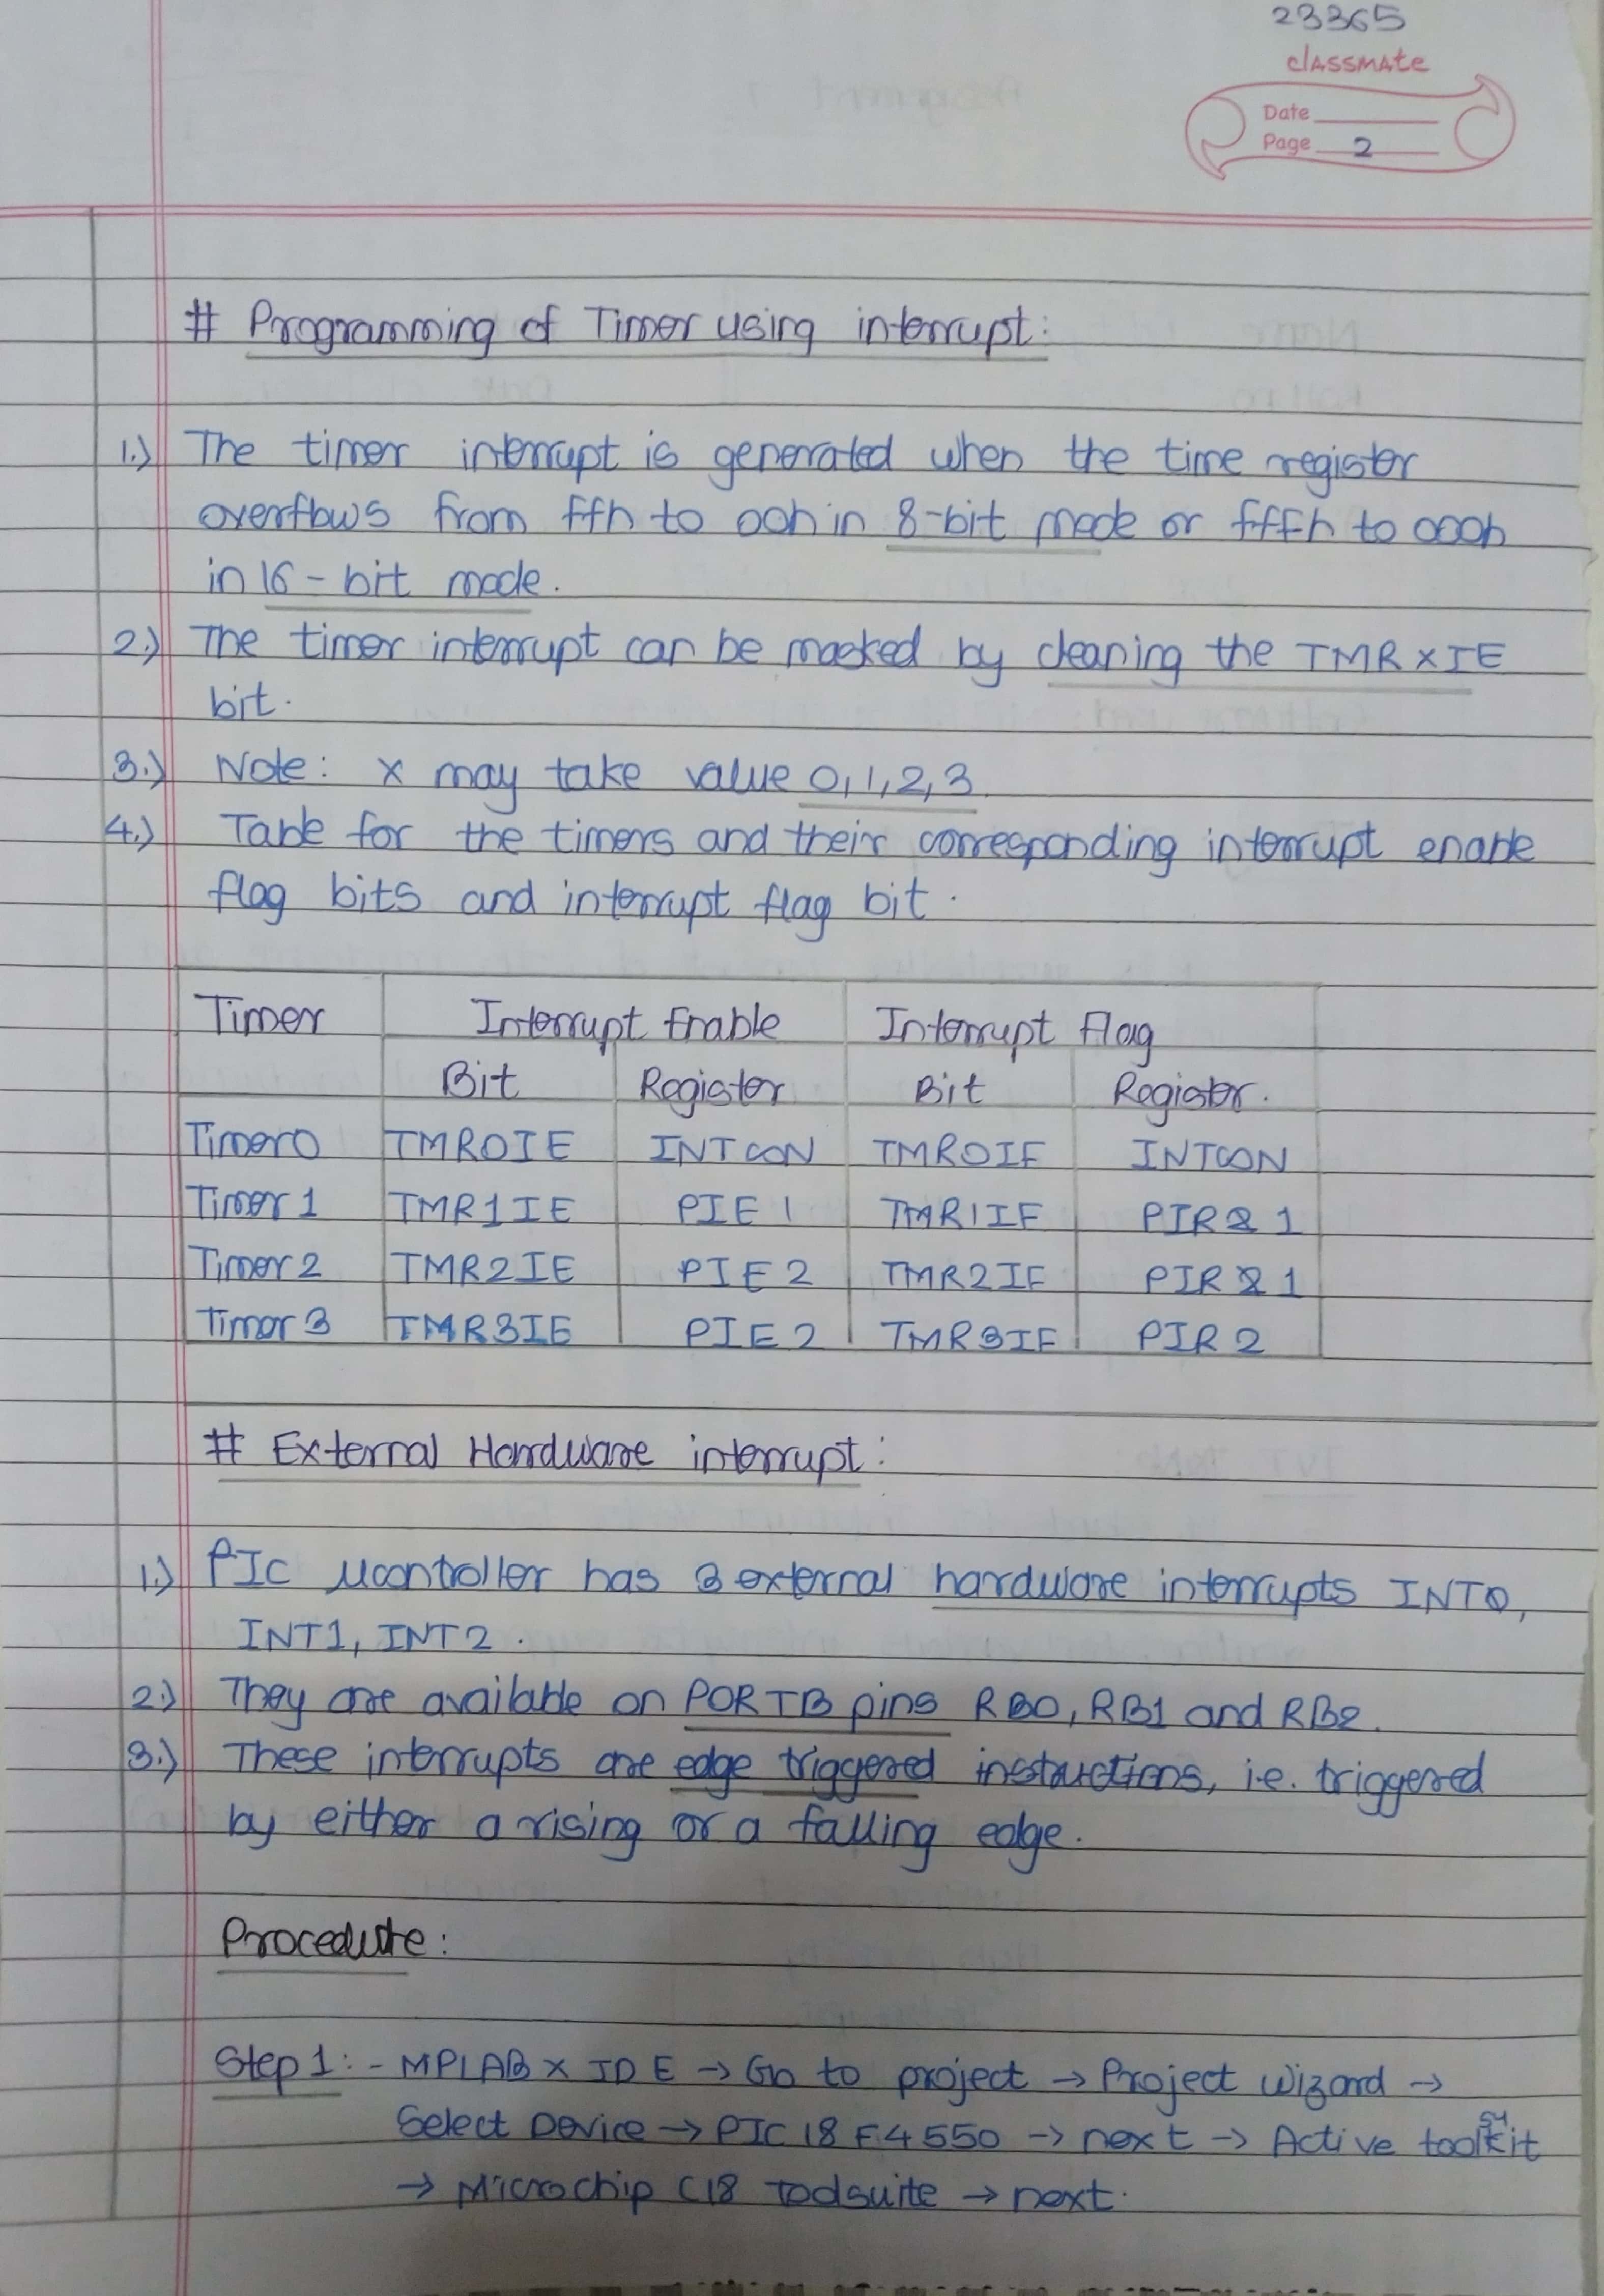 23365
classmate
Date
Page 2
# Programming of Timer using interrupt:
1.) The timer interrupt is generated when the time register
overflows from ffh to 00h in 8-bit mode or fffh to 000h
in 16-bit mode.
2.) The timer interrupt can be masked by clearing the TMRxIE
bit.
3.) Note: x may take value 0,1,2,3.
4.) Table for the timers and their corresponding interrupt enable
flag bits and interrupt flag bit.
Timer Interrupt Enable Interrupt Flag
Bit Register Bit Register.
Timer0 TMR0IE INTCON TMR0IF INTCON
Timer 1 TMR1IE PIE 1 TMR1IF PIR 1
Timer 2 TMR2IE PIE 2 TMR2IF PIR 1
Timer 3 TMR3IE PIE 2 TMR3IF PIR 2
# External Hardware interrupt:
1.) PIC μcontroller has 3 external hardware interrupts INT0,
INT1, INT2.
2.) They are available on PORTB pins RB0, RB1 and RB2.
3.) These interrupts are edge triggered instructions, i.e. triggered
by either a rising or a falling edge.
Procedure:
Step 1:- MPLAB X IDE → Go to project → Project wizard →
Select Device → PIC 18 F4550 → next → Active toolkit
→ Microchip C18 Toolsuite → next.